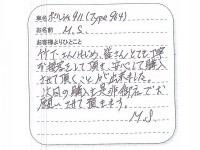 車名 ポルシェ911(Type964)
お名前 M.S.
お客様よりひとこと
竹下さんはじめ、皆さんとても丁寧
な接客をして頂き、安心して購入
させて頂くことが出来ました。
次回の購入も是非御店でお
願いさせて頂きます。
M.S